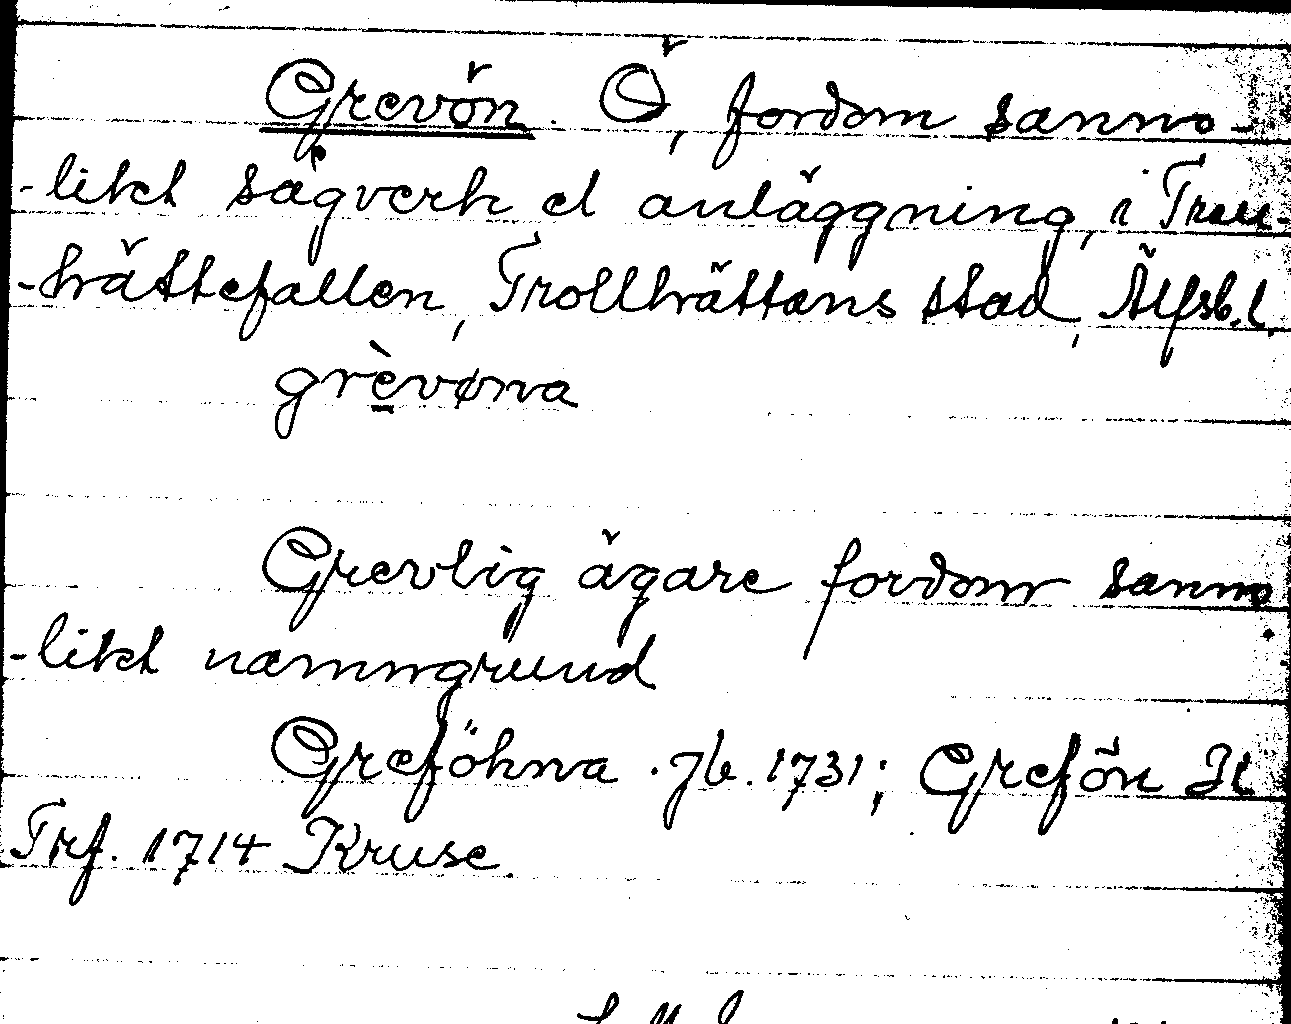 Grevön. Ö, fordom sanno-
-likt sågverk el anläggning, i Troll-
-hättefallen, Trollhättans stad, Älfsb. l.
grèvøna
Grevlig ägare fordom sanno
-likt namngrund
Greföhna. Jb. 1731; Grefön
Trf. 1714 Kruse